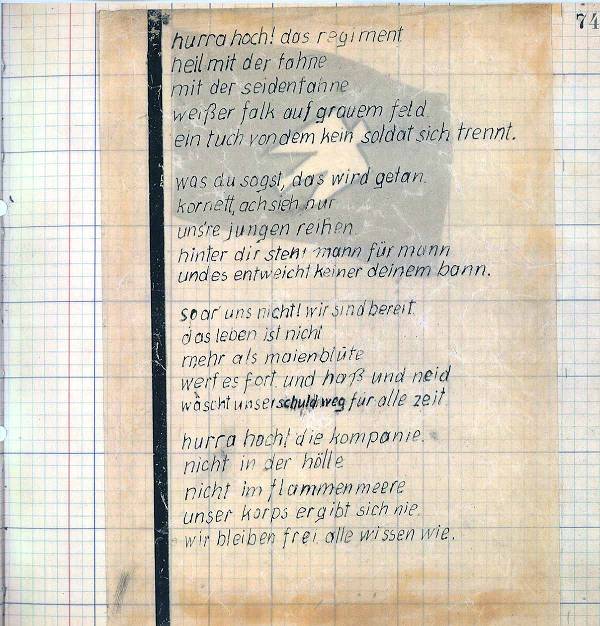 74
hurra hoch! das regiment
heil mit der fahne
mit der seidenfahne
weißer falk auf grauem feld
ein tuch von dem kein soldat sich trennt.
was du sagst, das wird getan.
kornett, ach sieh nur
uns're jungen reihen
hinter dir steht mann für mann
und es entweicht keiner deinem bann.
spar uns nicht! wir sind bereit.
das leben ist nicht
mehr als maienblüte
werf es fort, und haß und neid
wäscht unser schuld weg für alle zeit.
hurra hoch! die kompanie.
nicht in der hölle
nicht im flammenmeere
unser korps ergibt sich nie.
wir bleiben frei. alle wissen wie.